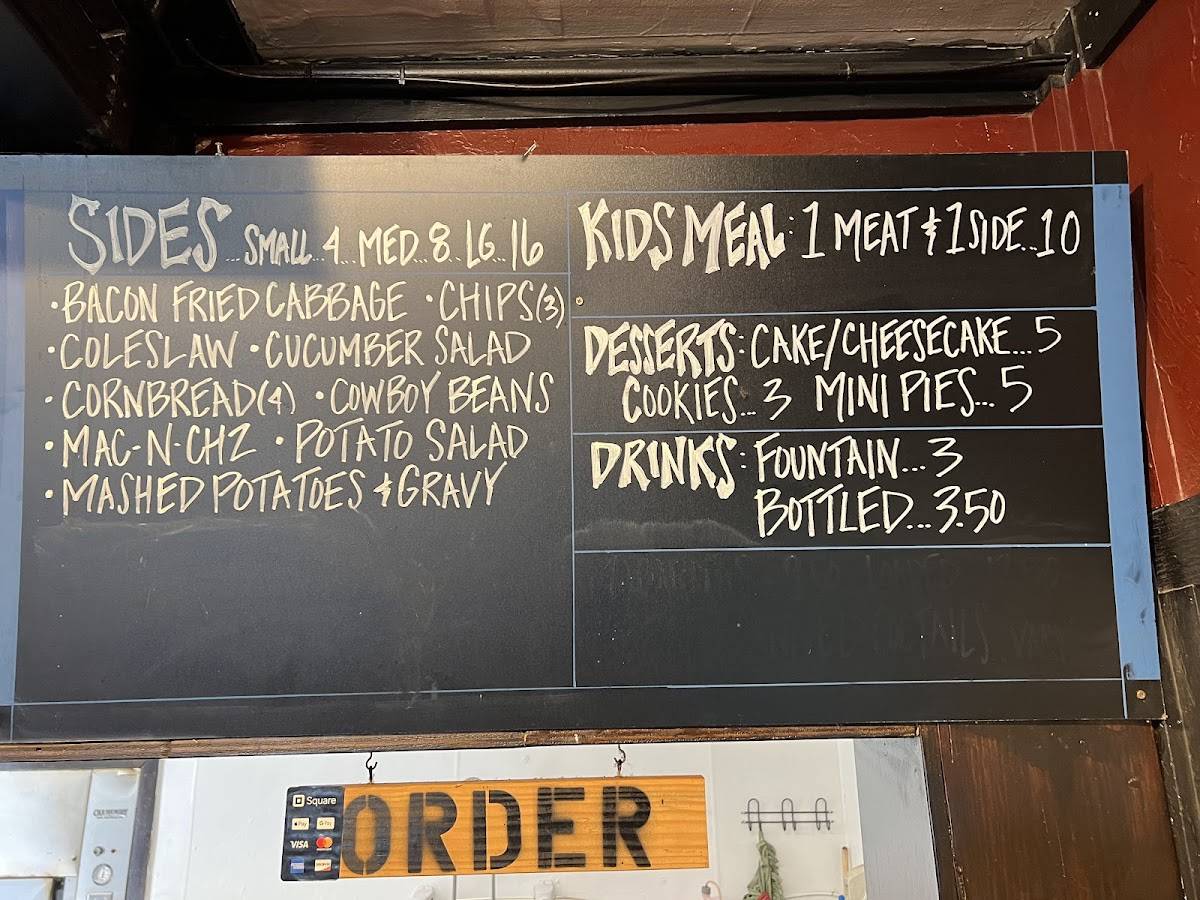 SIDES...SMALL..4..MED..8..LG..16
•BACON FRIED CABBAGE •CHIPS(3)
•COLESLAW •CUCUMBER SALAD
•CORNBREAD(4) •COWBOY BEANS
•MAC-N-CHZ •POTATO SALAD
•MASHED POTATOES & GRAVY
KIDS MEAL: 1 MEAT & 1 SIDE..10
DESSERTS: CAKE/CHEESECAKE...5
COOKIES...3 MINI PIES...5
DRINKS: FOUNTAIN...3
BOTTLED...3.50
Square
Pay G Pay
VISA
ORDER